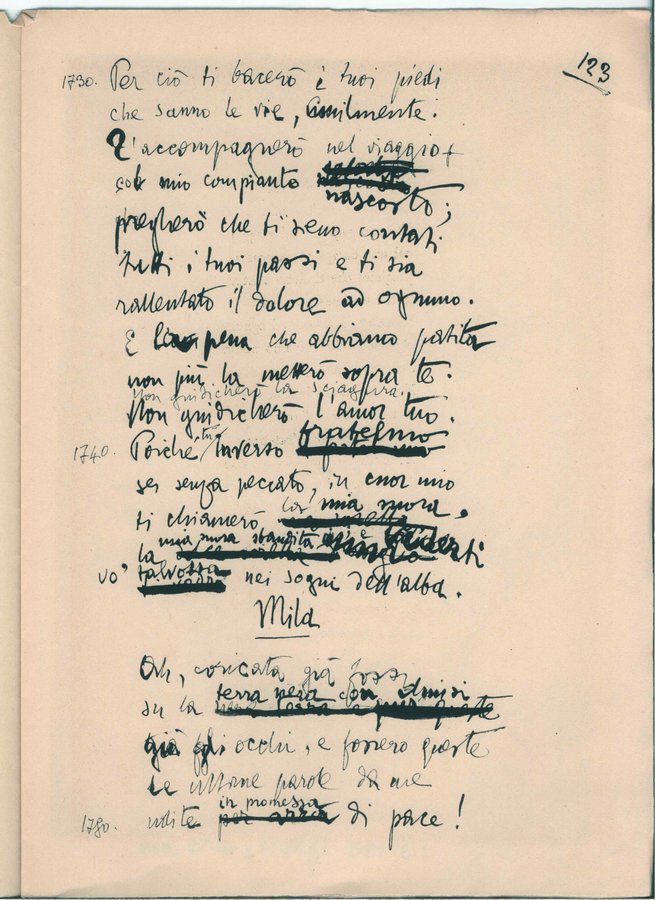 123
1730. Per ciò ti bacerò i tuoi piedi
che sanno le vie, umilmente.
T'accompagnerò nel viaggio
col mio compianto
nascosto;
pregherò che ti sieno contati
tutti i tuoi passi e ti sia
rallentato il dolore ad ognuno.
E pena che abbiamo patita
non più la metterò sopra te.
Non giudicherò la sciagura.
Non giudicherò l'amor tuo.
fratesmo
1740. Poiche tu inverso
sei senza peccato, in cuor mio
ti chiamerò la mia suora,
mia suora sbandita
la
vo' nei sogni dell'alba.
Mila
Oh, coricata già fossi
terra nera con chiusi
su la
già gli occhi, e fossero queste
le ultime parole da me
in promessa
1750. udite di pace!